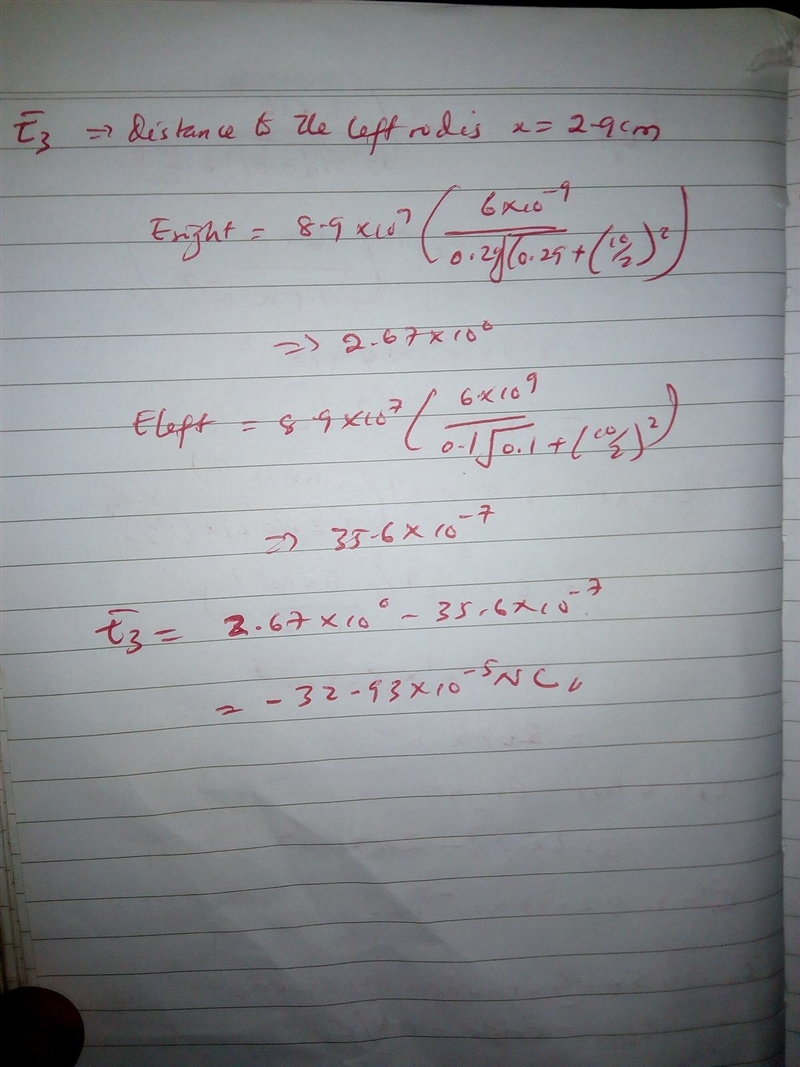 Ē₃ ⇒ Distance to the left rod is x = 2.9cm
Eright = 8.9 ×10⁷ ( 6×10⁻⁹ / 0.29√0.29 + (10/2)² )
⇒ 2.67×10⁰
Eleft = 8.9×10⁷ ( 6×10⁹ / 0.1√0.1 + (10/2)² )
⇒ 35.6×10⁻⁷
Ē₃ = 2.67×10⁰ − 35.6×10⁻⁷
= −32.93×10⁻⁵ N C